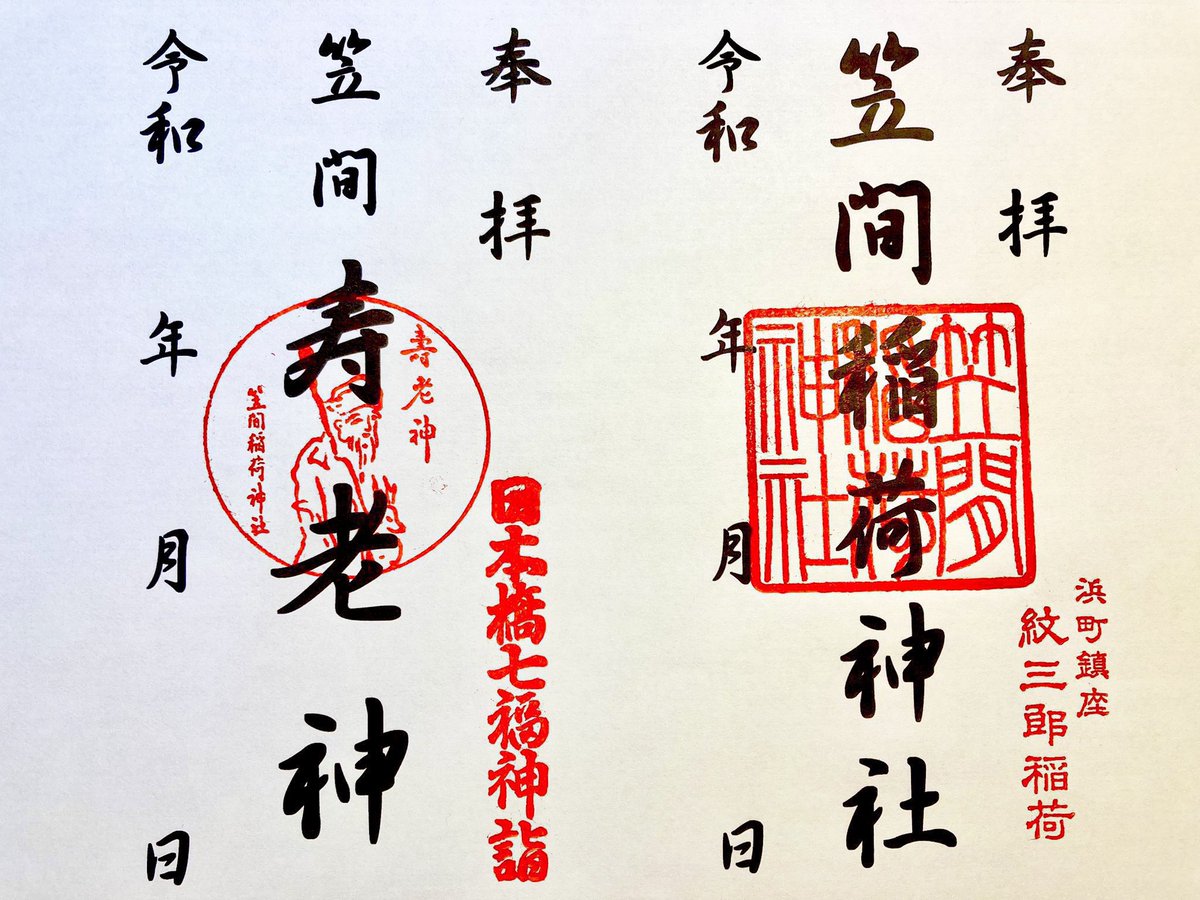 奉拝
笠間稲荷神社
笠間稲荷神社
浜町鎮座
紋三郎稲荷
令和 年 月 日
奉拝
日本橋七福神詣
笠間 寿老神
寿老神
笠間稲荷神社
令和 年 月 日